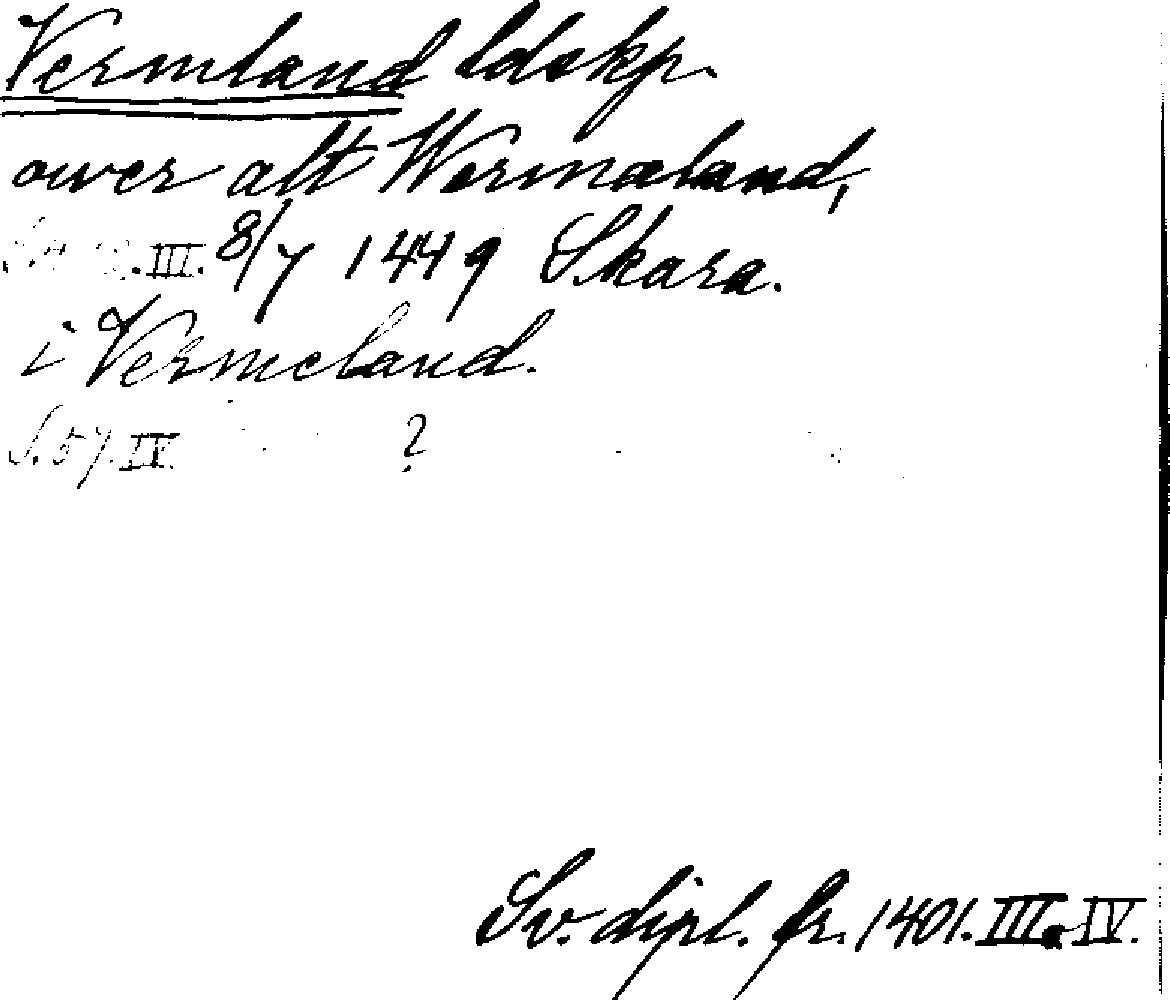 Vermland ldskp.
över alt Wermæland,
III. 8/7 1449 Skara.
i Vermeland.
S. 57. IV. ?
Sv. dipl. fr. 1401. III. IV.